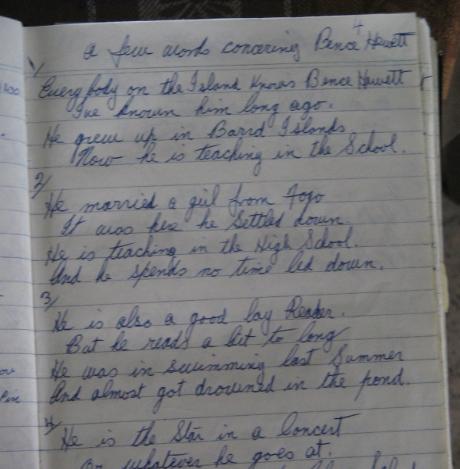 4
a few words concering Bence Hewett
1/
Every body on the Island knows Bence Hewett
I've known him long ago.
He grew up in Barrd Islands
Now he is teaching in the School.
2/
He married a girl from Fogo
It was her he settled down.
He is teaching in the High School.
And he spends no time led down.
3/
He is also a good lay Reader.
But he reads a bit to long
He was in swimming last Summer
And almost got drowned in the pond.
4/
He is the Star in a Concert
Or whatever he goes at.